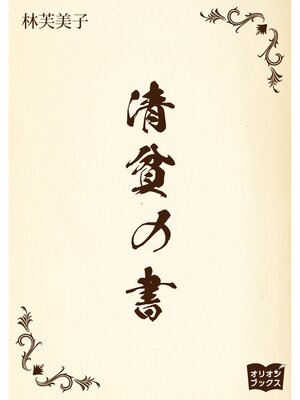 林芙美子
清貧の書
オリオン
ブックス